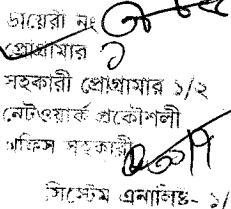 ডায়েরী নং
প্রোগ্রামার
সহকারী প্রোগ্রামার ১/২
নেটওয়ার্ক প্রকৌশলী
অফিস সহকারী
সিস্টেম এনালিষ্ট- ১/